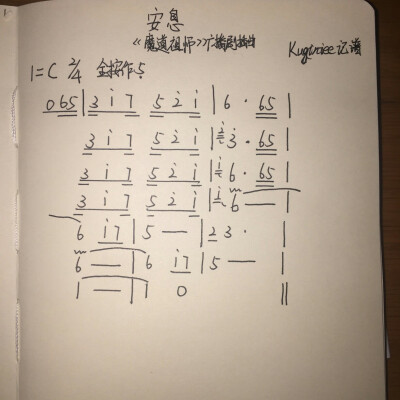 安息
《魔道祖师》广播剧插曲
Kugwiee 记谱
1=C 2/4 全按作5
065 | 3 i 7 5 2 i | 6 · 65 |
3 i 7 5 2 i | 2 3 · 65 |
3 i 7 5 2 i | i 6 · 65 |
3 i 7 5 2 i | i 6 — |
6 i7 | 5 — | 2 3 · |
6 — | 6 i7 | 5 — |
1 — | 1 0 ||